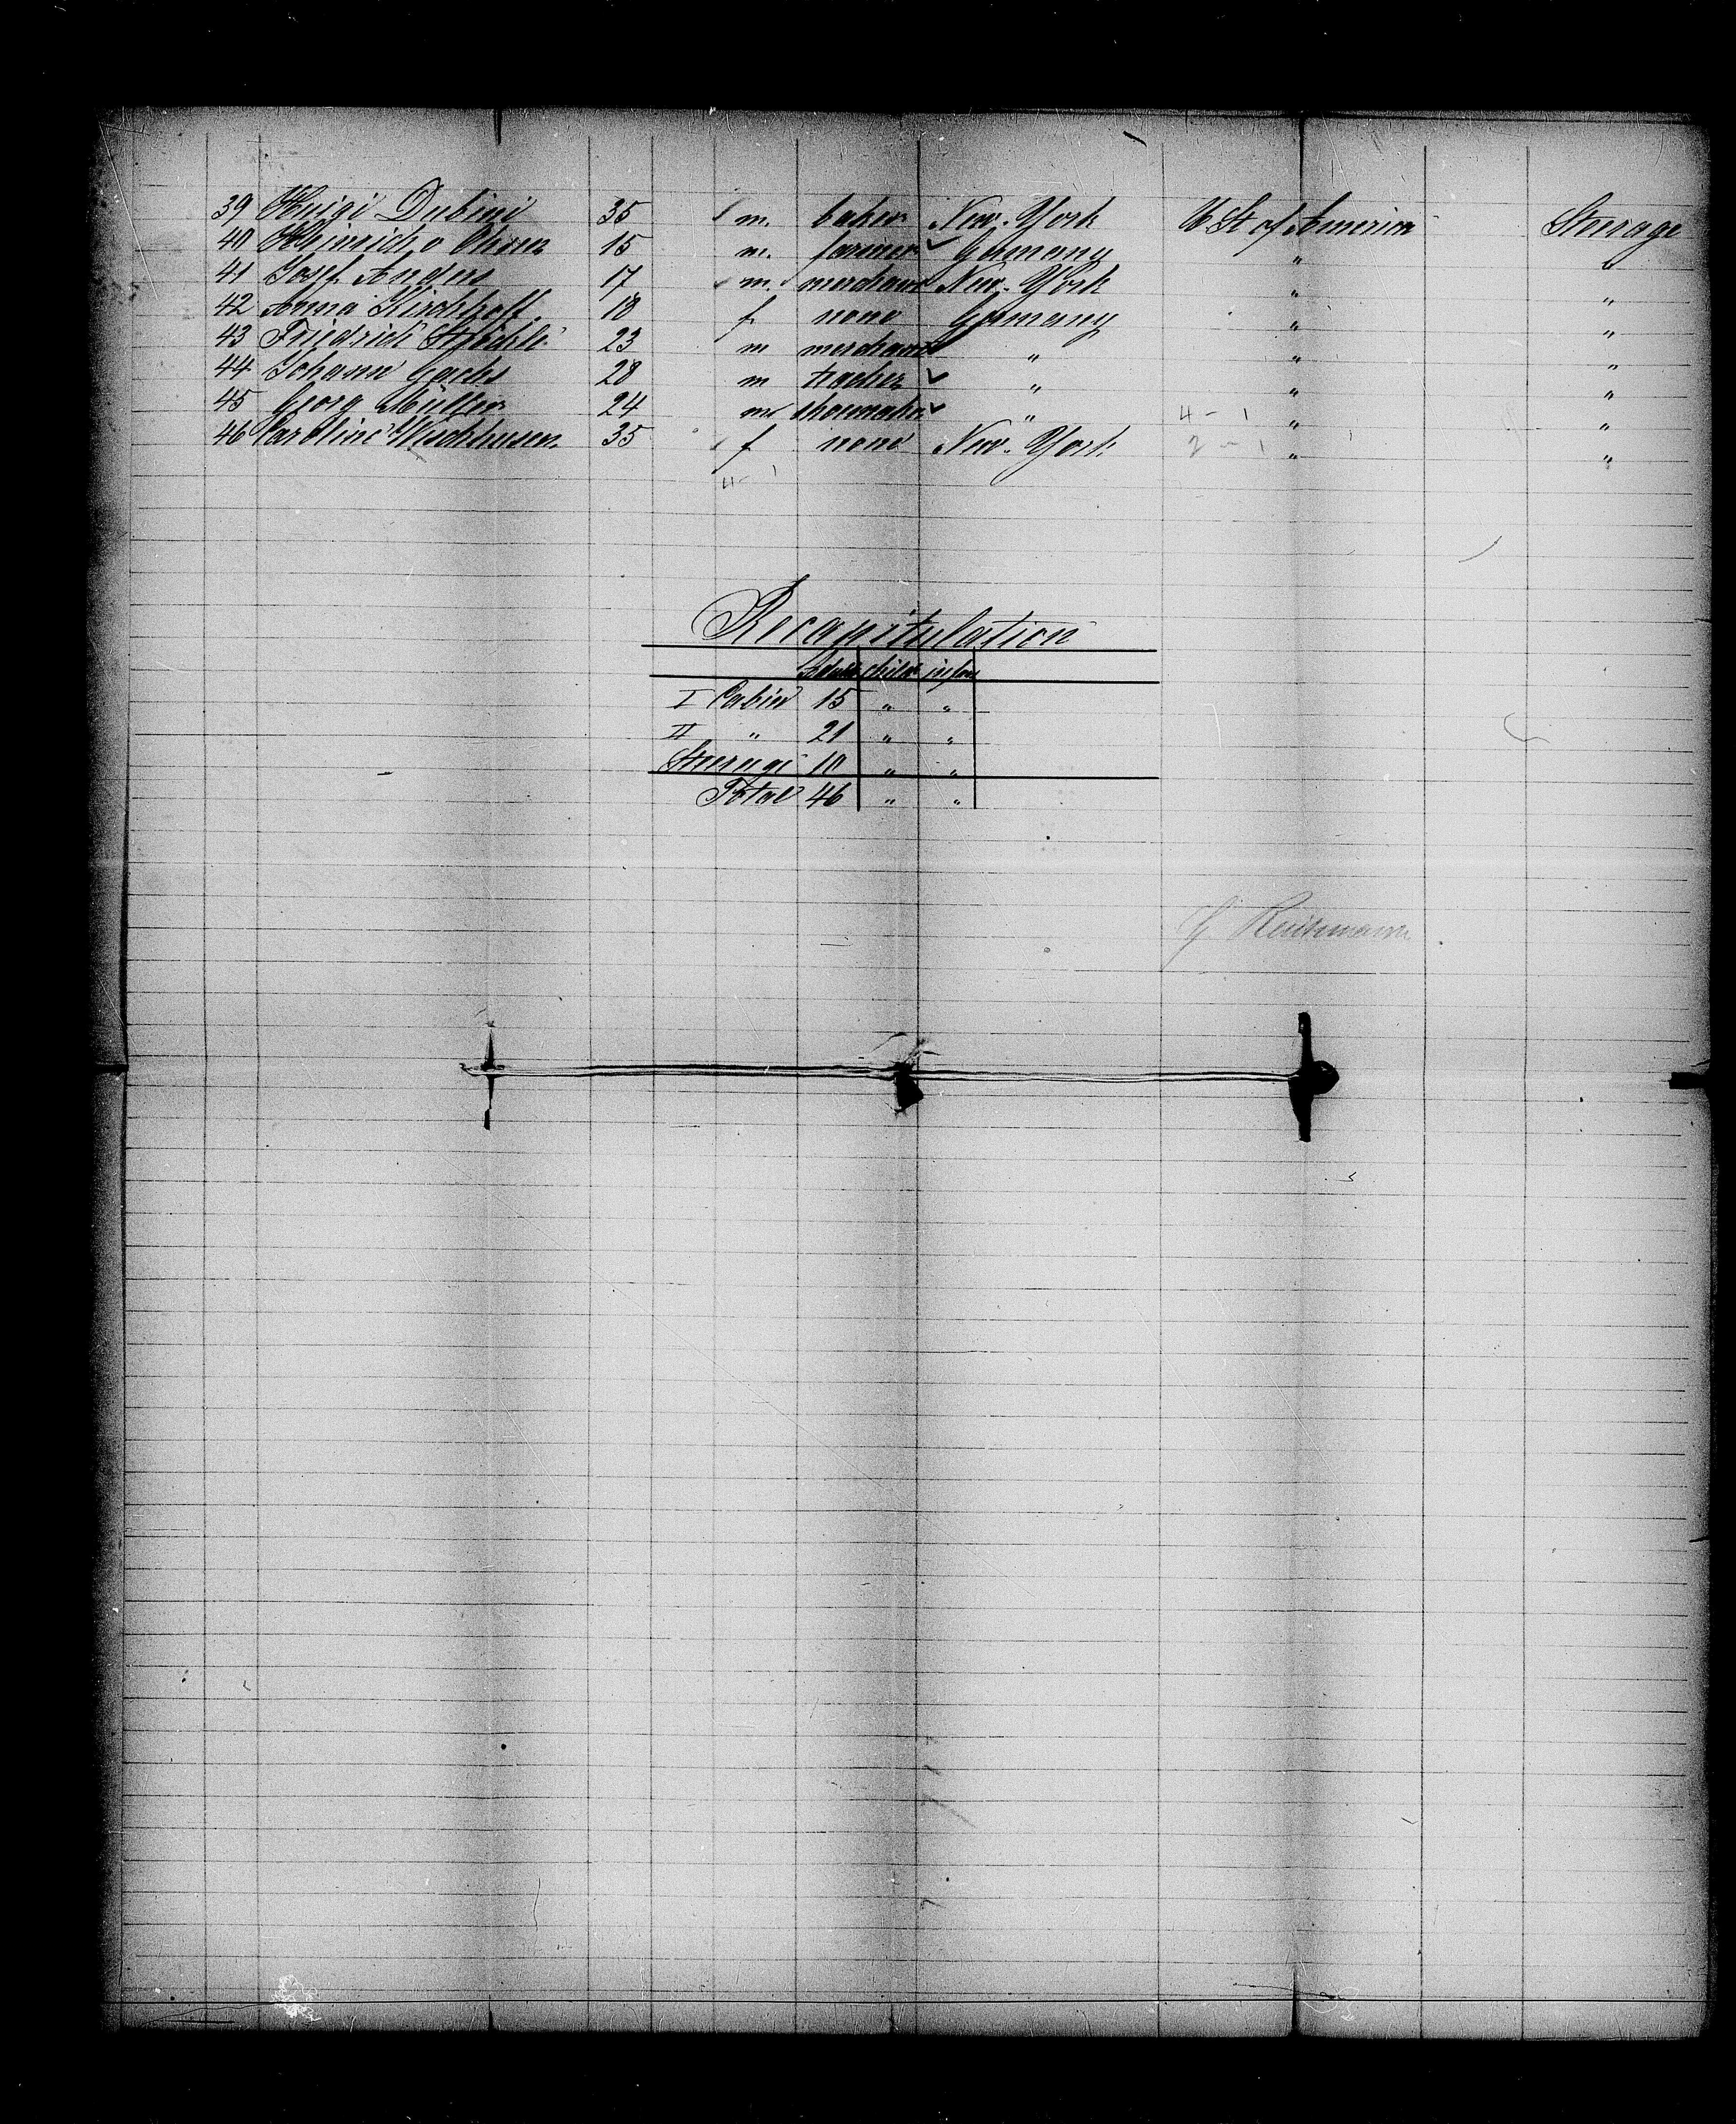 39 Huigi Dubini 35 m. baker New-York U St of America Steerage
40 Heinrich v 15 m. farmer ✓ Germany " "
41 Josef 17 m. merchant New-York " "
42 Anna Kirchhoff 18 f none Germany " "
43 Friedrich 23 m merchant " " "
44 Johann Gachs 28 m teacher ✓ " " "
45 Georg Müller 24 m shoemaker ✓ " 4 - 1 " "
46 Caroline Wischhusen 35 f none New-York 2 - 1 " "
4 - 1
Recapitulation
Adults child infan
I Cabin 15 " "
II " 21 " "
Steerage 10 " "
Total 46 " "